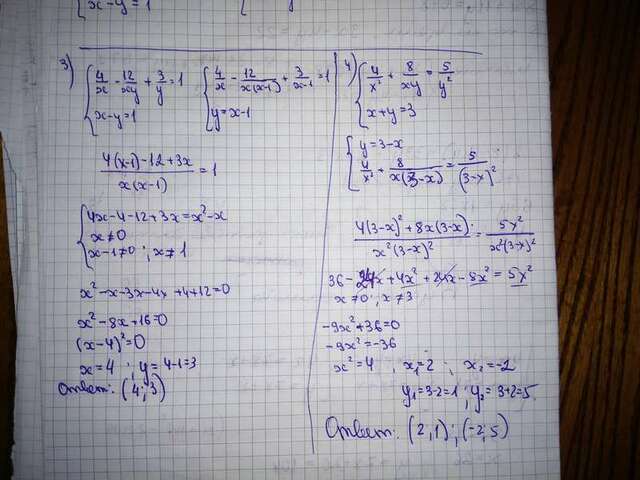 {x-y=1
3) {4/x - 12/xy + 3/y = 1 {4/x - 12/x(x-1) + 3/x-1 = 1
{x-y=1 {y=x-1
4(x-1)-12+3x / x(x-1) = 1
{4x-4-12+3x=x²-x
x≠0
x-1≠0; x≠1
x²-x-3x-4x+4+12=0
x²-8x+16=0
(x-4)²=0
x=4; y=4-1=3
Ответ: (4;3)
4) {4/x + 8/xy = 5/y²
{x+y=3
{y=3-x
{4/x + 8/x(3-x) = 5/(3-x)²
4(3-x)²+8x(3-x) / x²(3-x)² = 5x² / x²(3-x)²
36-24x+4x²+24x-8x²=5x²
x≠0; x≠3
-9x²+36=0
-9x²=-36
x²=4; x₁=2; x₂=-2
y₁=3-2=1; y₂=3+2=5
Ответ: (2;1); (-2;5)